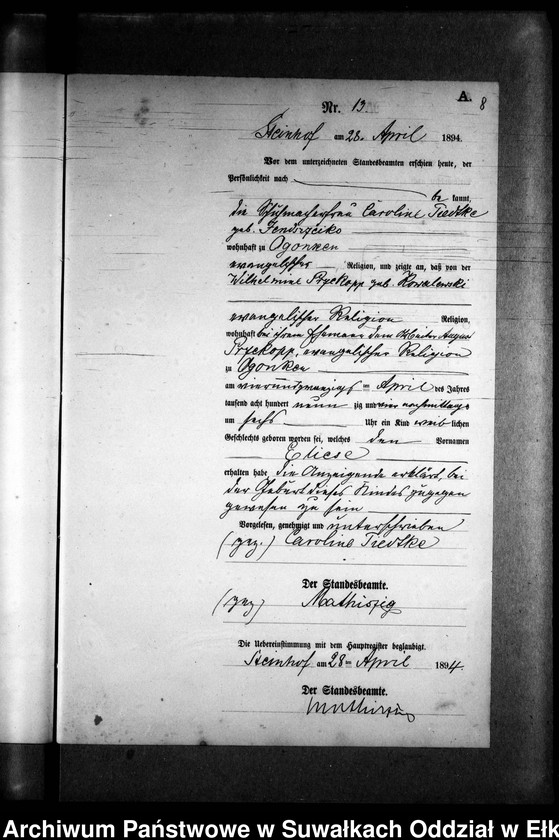 A. 8
Nr. 13
Steinhof am 28. April 1894.
Vor dem unterzeichneten Standesbeamten erschien heute, der
Persönlichkeit nach
be kannt,
die Schuhmacherfrau Caroline Tiedtke
geb. Jendrzeiko
wohnhaft zu Ogonken
evangelischer Religion, und zeigte an, daß von der
Wilhelmine Przekopp geb. Kowalewski
evangelischer Religion Religion,
wohnhaft bei ihrem Ehemann dem August
Przekopp, evangelischer Religion
zu Ogonken
am vierundzwanzigsten April des Jahres
tausend acht hundert neun zig und vier nachmittags
um sechs Uhr ein Kind weib lichen
Geschlechts geboren worden sei, welches den Vornamen
Eliese
erhalten habe, die Anzeigende erklärt, bei
der Geburt dieses Kindes zugegen
gewesen zu sein
Vorgelesen, genehmigt und unterschrieben
(gez.) Caroline Tiedtke
Der Standesbeamte.
(gez) Mathiszig
Die Uebereinstimmung mit dem Hauptregister beglaubigt.
Steinhof am 28ten April 1894.
Der Standesbeamte.
Mathiszig
Archiwum Państwowe w Suwałkach Oddział w Ełk